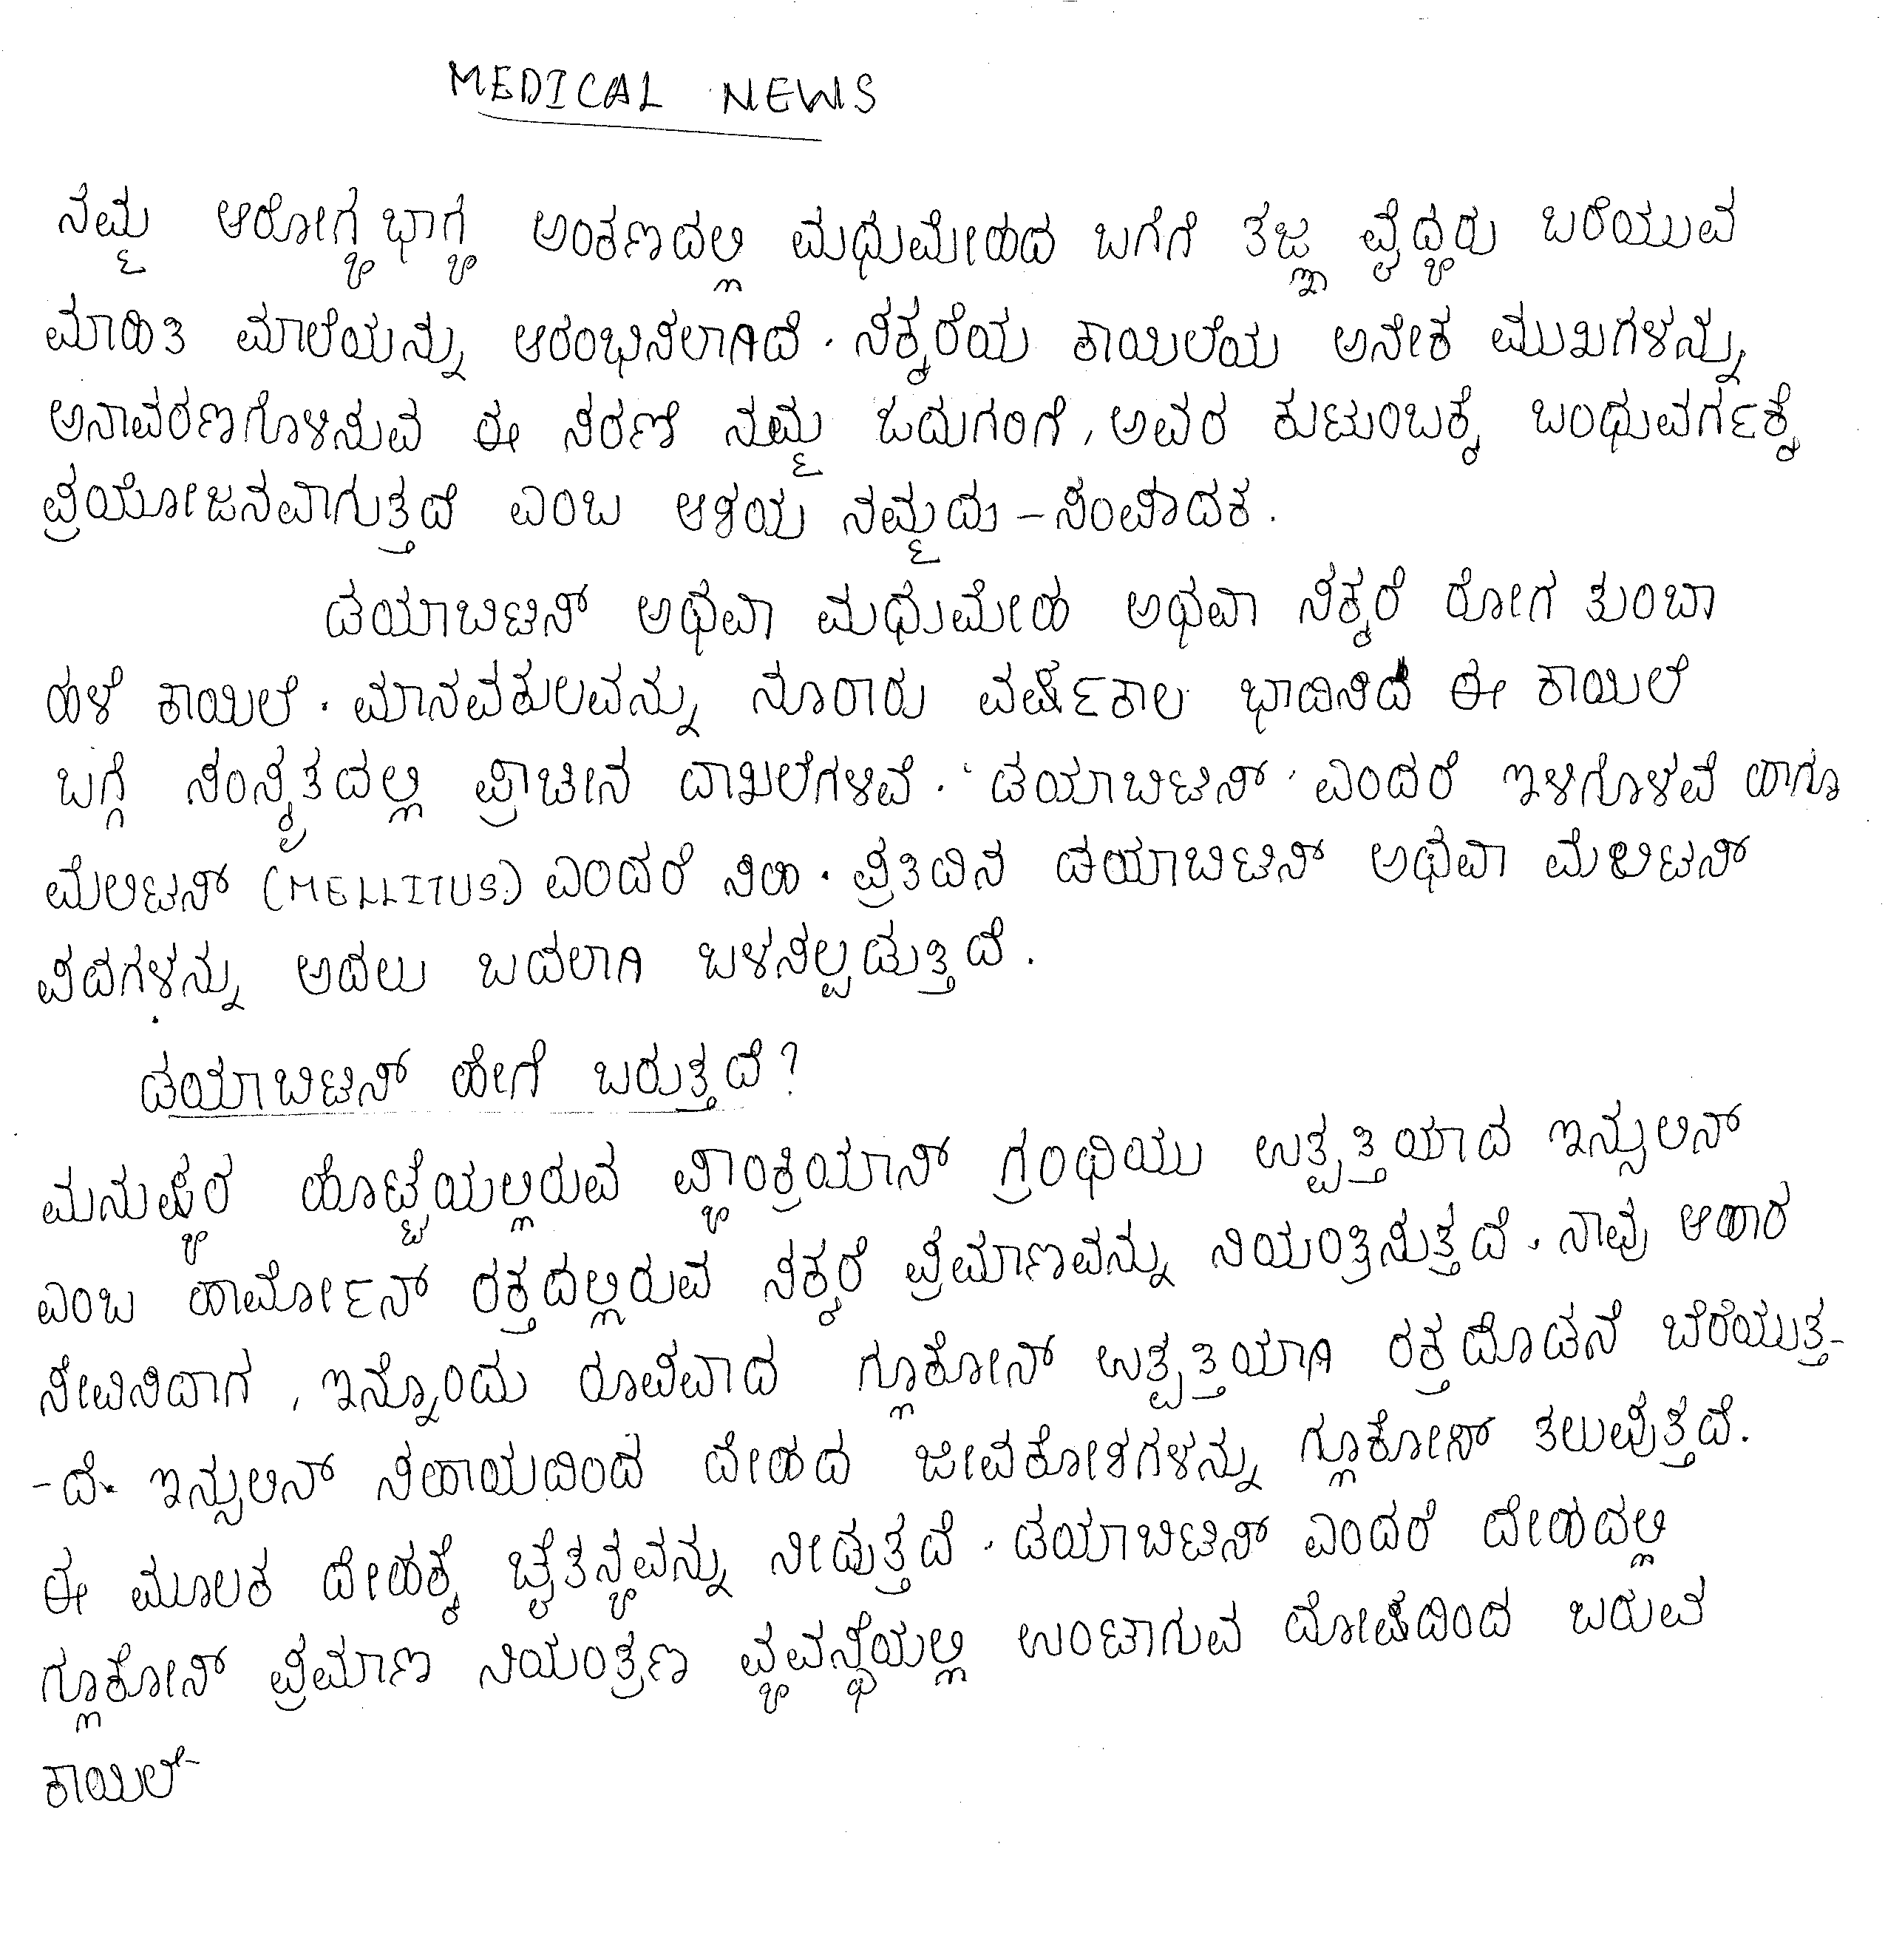 MEDICAL NEWS
ನಮ್ಮ ಆರೋಗ್ಯಭಾಗ್ಯ ಅಂಕಣದಲ್ಲಿ ಮಧುಮೇಹದ ಬಗೆಗೆ ತಜ್ಞ ವೈದ್ಯರು ಬರೆಯುವ
ಮಾಹಿತಿ ಮಾಲೆಯನ್ನು ಆರಂಭಿಸಲಾಗಿದೆ. ಸಕ್ಕರೆಯ ಕಾಯಿಲೆಯ ಅನೇಕ ಮುಖಗಳನ್ನು
ಅನಾವರಣಗೊಳಿಸುವ ಈ ಸರಣಿ ನಮ್ಮ ಓದುಗರಿಗೆ, ಅವರ ಕುಟುಂಬಕ್ಕೆ ಬಂಧುವರ್ಗಕ್ಕೆ
ಪ್ರಯೋಜನವಾಗುತ್ತದೆ ಎಂಬ ಆಶಯ ನಮ್ಮದು - ಸಂಪಾದಕ.
ಡಯಾಬಿಟಿಸ್ ಅಥವಾ ಮಧುಮೇಹ ಅಥವಾ ಸಕ್ಕರೆ ರೋಗ ತುಂಬಾ
ಹಳೆ ಕಾಯಿಲೆ. ಮಾನವಕುಲವನ್ನು ನೂರಾರು ವರ್ಷಕಾಲ ಭಾದಿಸಿದ ಈ ಕಾಯಿಲೆ
ಬಗ್ಗೆ ಸಂಸ್ಕೃತದಲ್ಲಿ ಪ್ರಾಚೀನ ದಾಖಲೆಗಳಿವೆ. 'ಡಯಾಬಿಟಿಸ್' ಎಂದರೆ ಇಳಿಗೊಳವೆ ಹಾಗೂ
ಮೆಲಿಟಸ್ (MELLITUS) ಎಂದರೆ ಸಿಹಿ. ಪ್ರತಿದಿನ ಡಯಾಬಿಟಿಸ್ ಅಥವಾ ಮೆಲಿಟಸ್
ಪದಗಳನ್ನು ಅದಲು ಬದಲಾಗಿ ಬಳಸಲ್ಪಡುತ್ತಿದೆ.
ಡಯಾಬಿಟಿಸ್ ಹೇಗೆ ಬರುತ್ತದೆ?
ಮನುಷ್ಯರ ಹೊಟ್ಟೆಯಲ್ಲಿರುವ ಪ್ಯಾಂಕ್ರಿಯಾಸ್ ಗ್ರಂಥಿಯು ಉತ್ಪತ್ತಿಯಾದ ಇನ್ಸುಲಿನ್
ಎಂಬ ಹಾರ್ಮೋನ್ ರಕ್ತದಲ್ಲಿರುವ ಸಕ್ಕರೆ ಪ್ರಮಾಣವನ್ನು ನಿಯಂತ್ರಿಸುತ್ತದೆ. ನಾವು ಆಹಾರ
ಸೇವಿಸಿದಾಗ, ಇನ್ನೊಂದು ರೂಪವಾದ ಗ್ಲೂಕೋಸ್ ಉತ್ಪತ್ತಿಯಾಗಿ ರಕ್ತದೊಡನೆ ಬೆರೆಯುತ್ತ-
-ದೆ. ಇನ್ಸುಲಿನ್ ಸಹಾಯದಿಂದ ದೇಹದ ಜೀವಕೋಶಗಳನ್ನು ಗ್ಲೂಕೋಸ್ ತಲುಪುತ್ತದೆ.
ಈ ಮೂಲಕ ದೇಹಕ್ಕೆ ಚೈತನ್ಯವನ್ನು ನೀಡುತ್ತದೆ. ಡಯಾಬಿಟಿಸ್ ಎಂದರೆ ದೇಹದಲ್ಲಿ
ಗ್ಲೂಕೋಸ್ ಪ್ರಮಾಣ ನಿಯಂತ್ರಣ ವ್ಯವಸ್ಥೆಯಲ್ಲಿ ಉಂಟಾಗುವ ದೋಷದಿಂದ ಬರುವ
ಕಾಯಿಲೆ